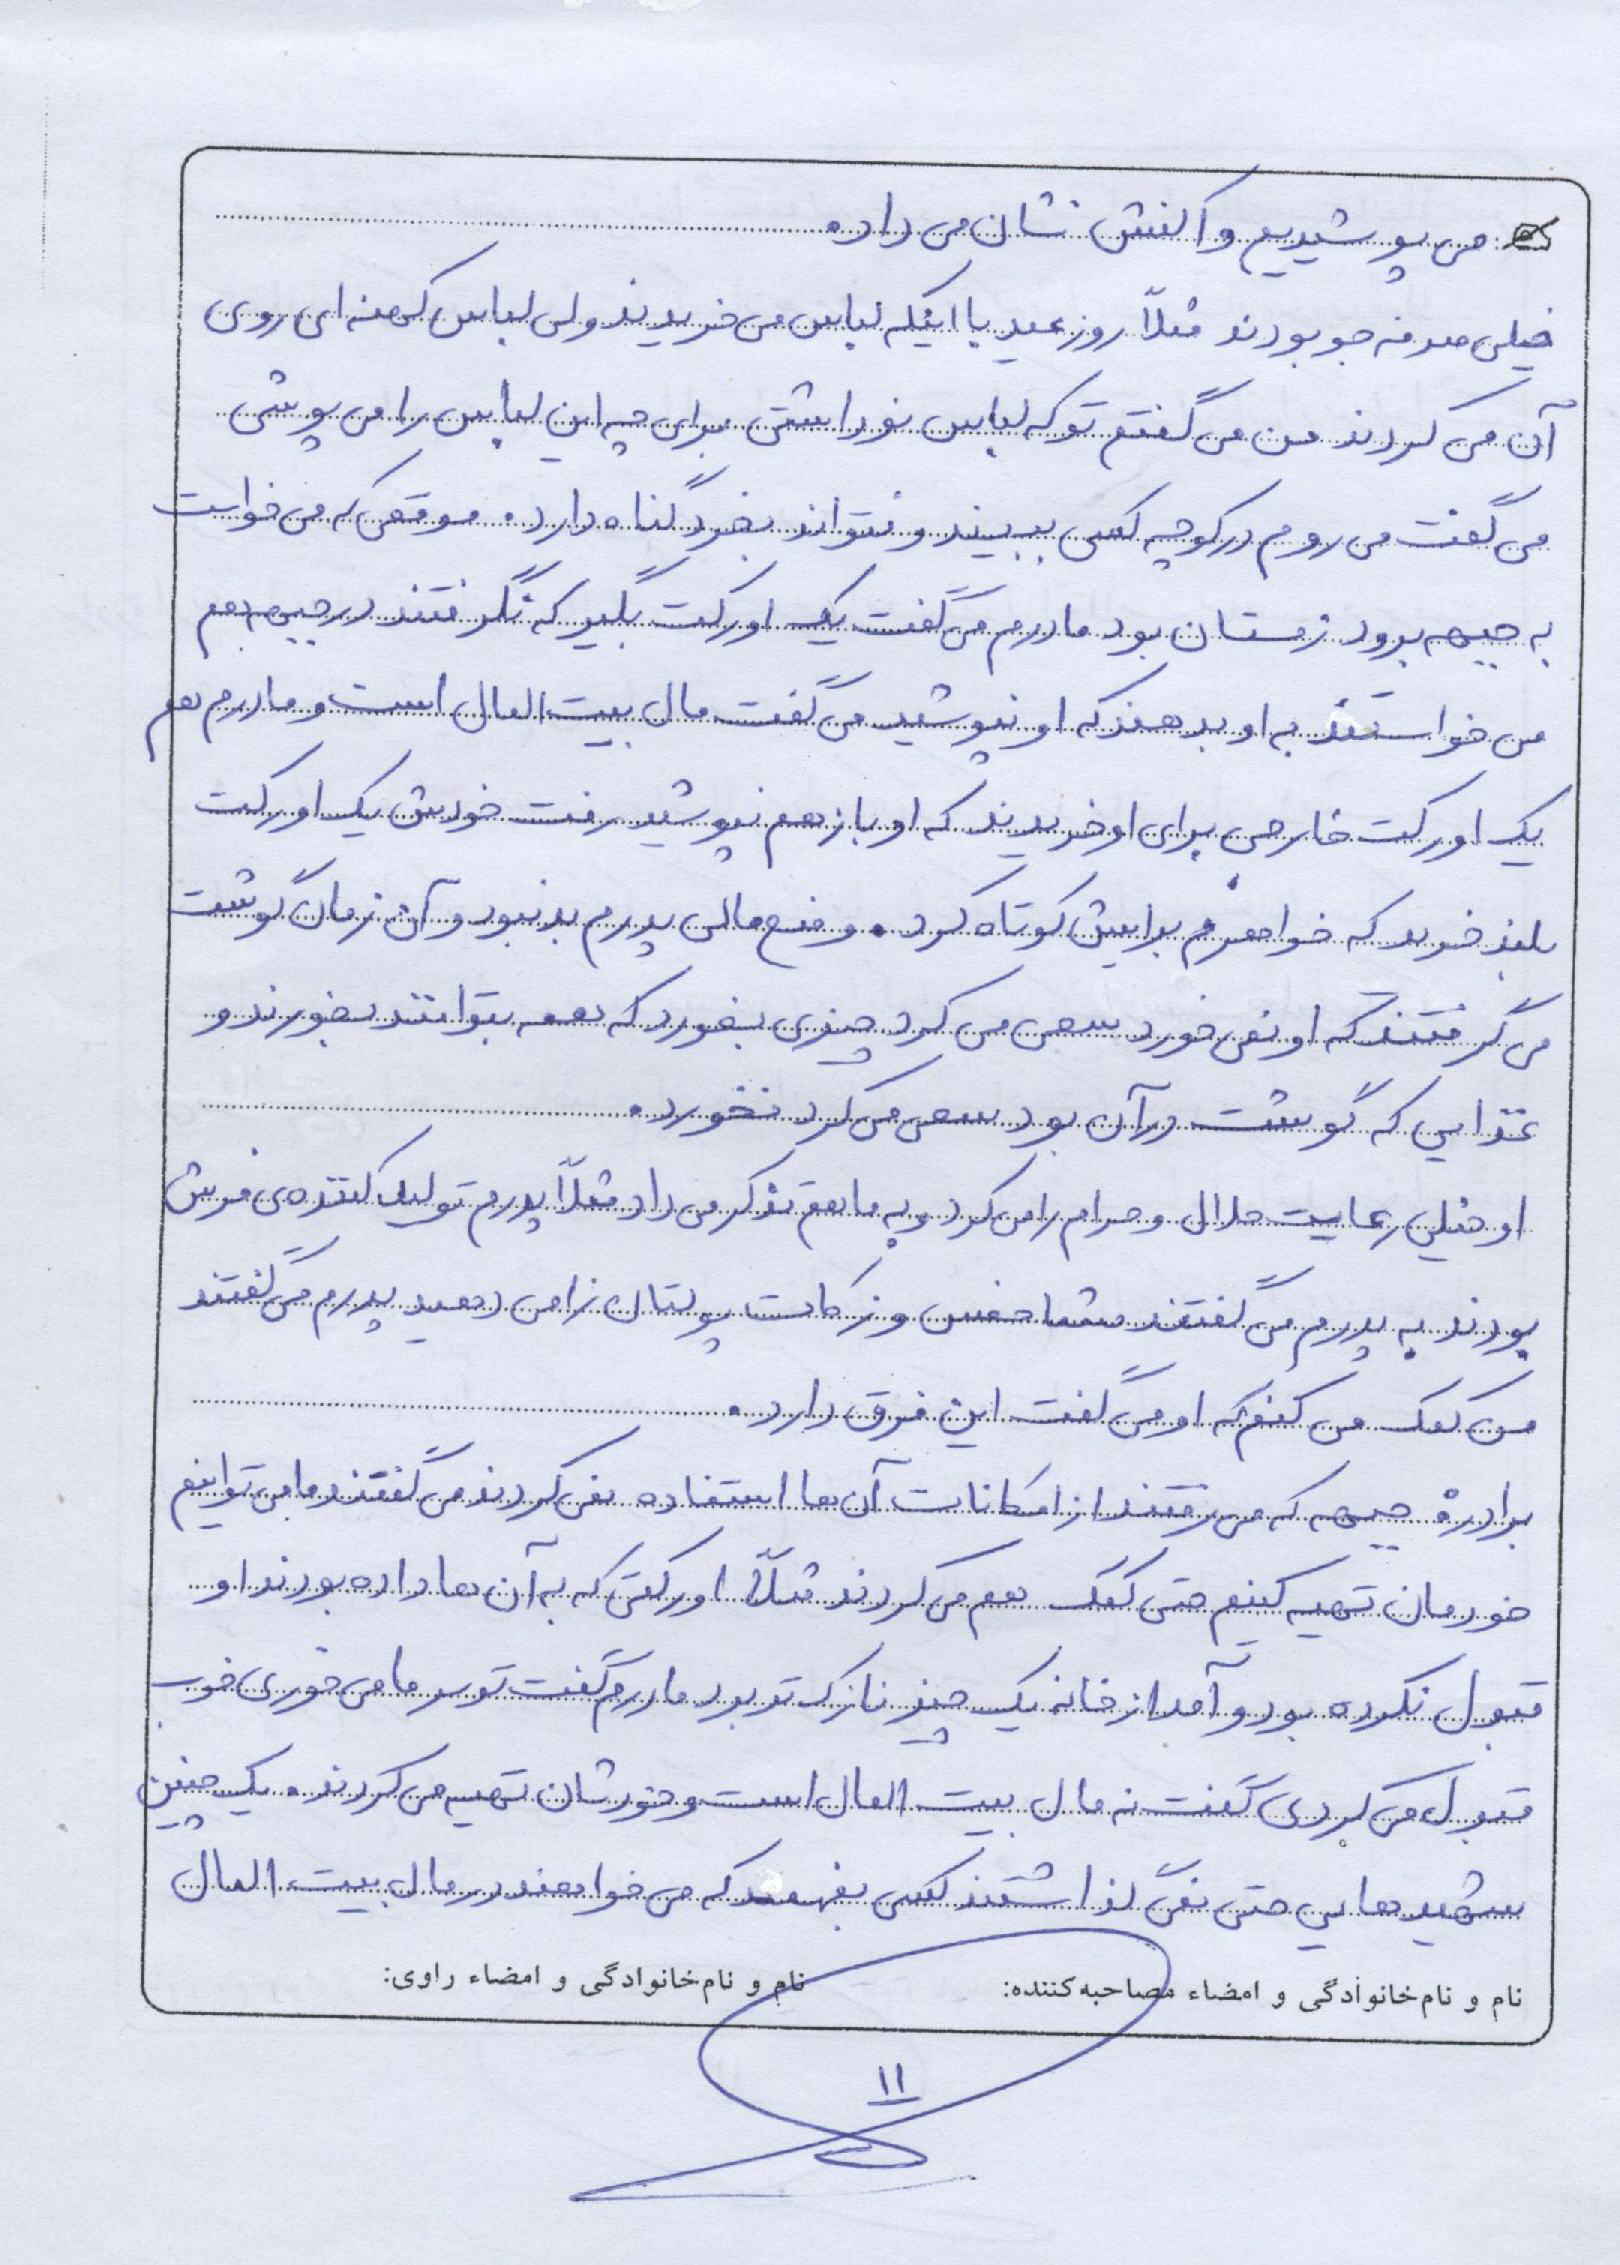 می پوشیدیم واکنش نشان می داده
خیلی صرفه جو بودند مثلاً روز عید با اینکه لباس می خریدند ولی لباس کهنه ای روی
آن می کردند من می گفتم تو که لباس نو داشتی برای چه این لباس را می پوشی
می گفت می روم در کوچه کسی ببیند و نتواند بخرد گناه دارد. موقعی که می خواست
به جبهه برود زمستان بود مادرم می گفت یک اورکت بگیر که نگرفتند در جبهه هم
می خواستند به او بدهند که او نپوشید می گفت مال بیت المال است و مادرم هم
یک اورکت خارجی برای او خریدند که او باز هم نپوشید رفت خودش یک اورکت
بلند خرید که خواهرم برایش کوتاه کرد. وضع مالی پدرم بد نبود و آن زمان گوشت
می گرفتند که او نمی خورد سعی می کرد چیزی بخورد که همه بتوانند بخورند و
غذایی که گوشت در آن بود سعی می کرد نخورد.
او خیلی رعایت حلال و حرام را می کرد و به ما هم تذکر می داد مثلاً پدرم تولید کننده ی فرش
بودند به پدرم می گفتند شما خمس و زکات پولتان را می دهید پدرم می گفتند
من کمک می کنم که او می گفت این فرق دارد.
برادرم جبهه که می رفتند از امکانات آن ها استفاده نمی کردند می گفتند ما می توانیم
خودمان تهیه کنیم حتی کمک هم می کردند مثلاً اورکتی که به آن ها داده بودند او
قبول نکرده بود و آمد از خانه یک چیز نازک تر برد مادرم گفت تو سرما می خوری خوب
قبول می کردی گفت نه مال بیت المال است و خودشان تهیه می کردند. یک چنین
شهید هایی حتی نمی گذاشتند کسی بفهمد که می خواهند در مال بیت المال
نام و نام خانوادگی و امضاء مصاحبه کننده: نام و نام خانوادگی و امضاء راوی:
۱۱